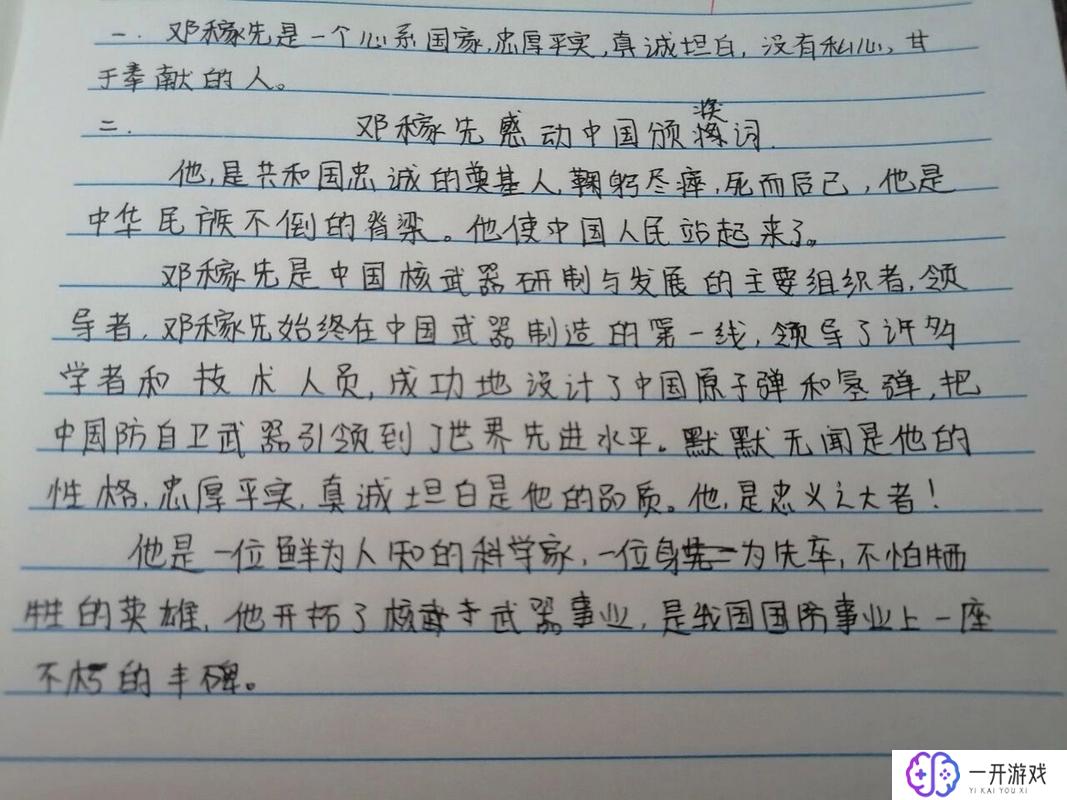 一．邓稼先是一个心系国家，忠厚平实，真诚坦白，没有私心，甘
于奉献的人。
二．邓稼先感动中国颁奖词．
他，是共和国忠诚的奠基人，鞠躬尽瘁，死而后已，他是
中华民族不倒的脊梁。他使中国人民站起来了。
邓稼先是中国核武器研制与发展的主要组织者，领
导者，邓稼先始终在中国武器制造的第一线，领导了许多
学者和技术人员，成功地设计了中国原子弹和氢弹，把
中国防自卫武器引领到了世界先进水平。默默无闻是他的
性格，忠厚平实，真诚坦白是他的品质。他，是忠义之大者！
他是一位鲜为人知的科学家，一位身为先车，不怕牺
牲的英雄，他开拓了核武器事业，是我国国防事业上一座
不朽的丰碑。
一开游戏
YI KAI YOU XI